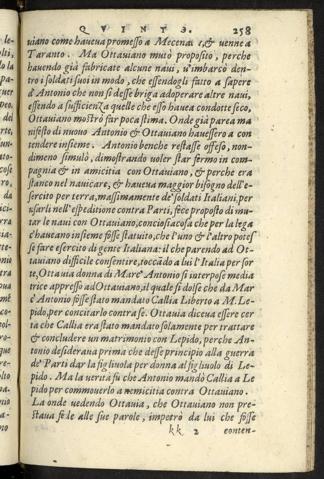 QVINTO. 258
uiano come haueua promesso a Mecenate, & uenne a
Taranto. Ma Ottauiano mutò proposito, perche
hauendo già fabricate alcune naui, u'imbarcò den-
tro i soldati suoi in modo, che essendogli fatto a sapere
d'Antonio che non si desse briga adoperare altre naui,
essendo a sufficienza quelle che esso hauea condotte seco,
Ottauiano mostrò far poca stima. Onde già parea ma
nifesto di nuouo Antonio & Ottauiano hauessero a con
tendere insieme. Antonio benche restasse offeso, non-
dimeno simulò, dimostrando uoler star fermo in com-
pagnia & in amicitia con Ottauiano, & perche era
stanco nel nauicare, & haueua maggior bisogno dell'e-
sercito per terra, massimamente de' soldati Italiani, per
usarli nell'espeditione contra Parti, fece proposito di mu-
tar le naui con Ottauiano, conciosiacosa che per la lega
c'haueano insieme fosse statuito, che l'uno & l'altro potes
se fare esercito di gente Italiana: il che parendo ad Ot-
tauiano difficile consentire, toccãdo a lui l'Italia per sor
te, Ottauia donna di Marc' Antonio si interpose media
trice appresso ad Ottauiano, il quale si dolse che da Mar
c' Antonio fosse stato mandato Callia Liberto a M. Le-
pido, per concitarlo contra se. Ottauia diceua essere cer
ta che Callia era stato mandato solamente per trattare
& concludere un matrimonio con Lepido, perche An-
tonio desideraua prima che desse principio alla guerra
de' Parti dar la figliuola per donna al figliuolo di Le-
pido. Ma la uerità fù che Antonio mandò Callia a Le
pido per commouerlo a nemicitia contra Ottauiano.
La onde uedendo Ottauia, che Ottauiano non pre-
staua fede alle sue parole, impetrò da lui che fosse
kk 2 conten-